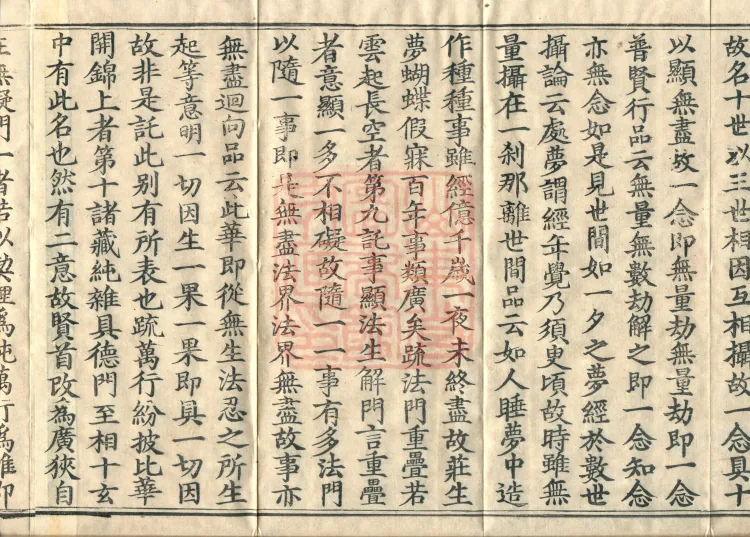 故名十世以三世相因互相攝故一念具十
以顯無盡故一念即無量劫無量劫即一念
普賢行品云無量無數劫解之即一念知念
亦無念如是見世間如一夕之夢經於數世
攝論云處夢謂經年覺乃須臾頃故時雖無
量攝在一刹那離世間品云如人睡夢中造
作種種事雖經億千歲一夜未終盡故莊生
夢蝴蝶假寐百年事類廣矣疏法門重疊若
雲起長空者第九託事顯法生解門言重疊
者意顯一多不相礙故隨一一事有多法門
以隨一事即是無盡法界法界無盡故事亦
無盡迴向品云此華即從無生法忍之所生
起等意明一切因生一果一果即具一切因
故非是託此別有所表也疏萬行紛披比華
開錦上者第十諸藏純雜具德門至相十玄
中有此名也然有二意故賢首改為廣狹自
在無礙門一者若以契理為純萬行為雜即